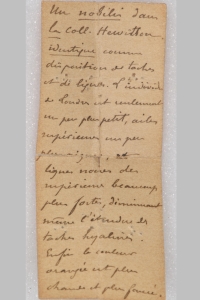 Un nobilis dans
la Coll. Hewitson
identique comme
disposition de taches
et de lignes. L'individu
de Londres est seulement
un peu plus petit, ailes
supérieures un peu
plus aigues, et
lignes noires des
supérieures beaucoup
plus fortes, diminuant
même l'étendue des
taches hyalines.
Enfin la couleur
orangée est plus
chaude et plus foncée.